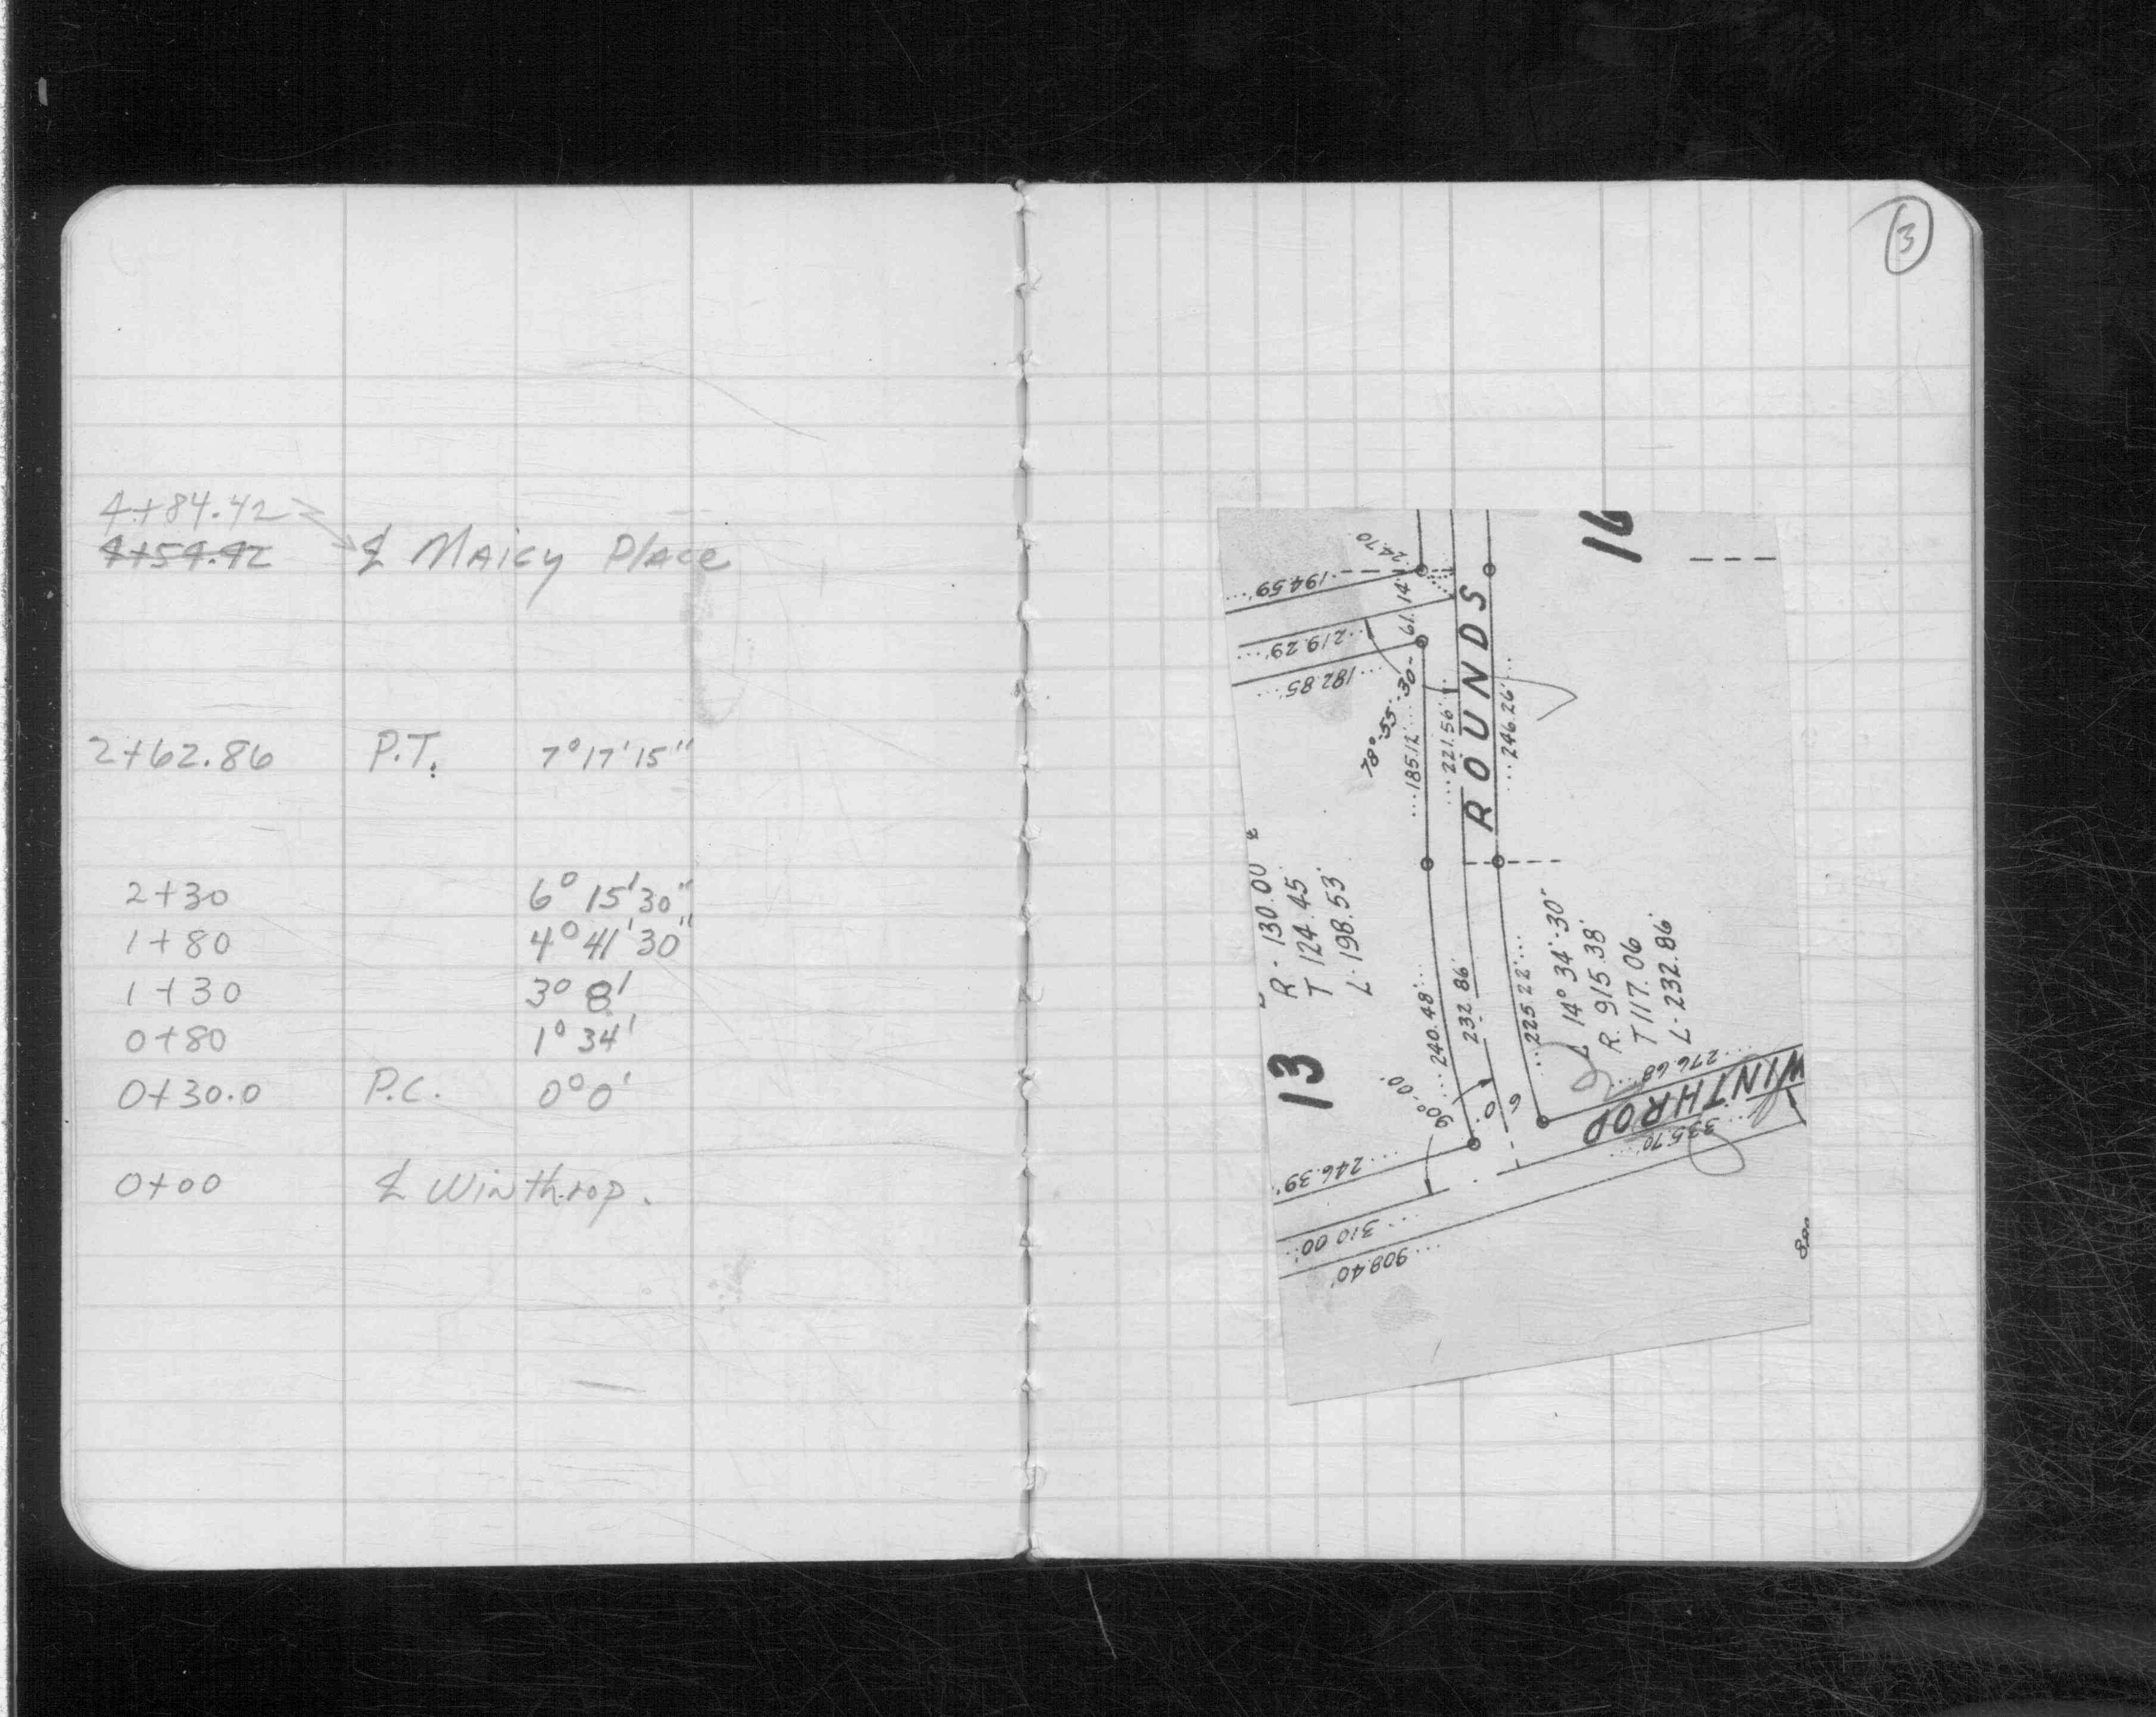 4+84.42
4+54.42 ℄ Maicy Place
2+62.86 P.T. 7°17'15"
2+30 6°15'30"
1+80 4°41'30"
1+30 3°8'
0+80 1°34'
0+30.0 P.C. 0°0'
0+00 ℄ Winthrop.
3
16
24.70
194.59'
61.14'
219.29'
182.85'
78°-55'-30"
185.12'
221.56'
ROUNDS
246.26'
R - 130.00'
T 124.45'
L - 198.53'
13
240.48'
232.86'
225.22'
14°-34'-30"
R. 915.38'
T 117.06
L - 232.86'
90°-00'
276.68
WINTHROP
335.70'
246.39'
310.00'
908.40'